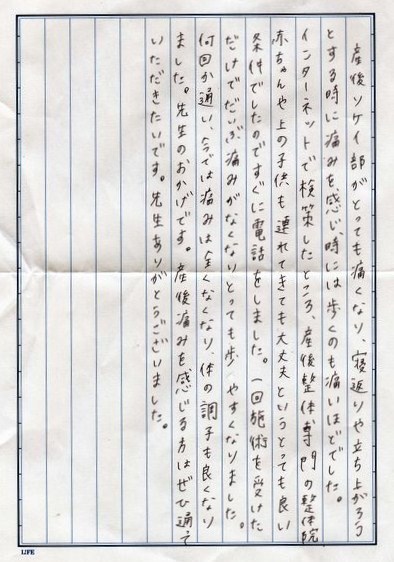 産後ソケイ部がとっても痛くなり、寝返りや立ち上がろう
とする時に痛みを感じ、時には歩くのも痛いほどでした。
インターネットで検策したところ、産後整体専門の整体院
赤ちゃんや上の子供も連れてきても大丈夫というとっても良い
条件でしたのですぐに電話をしました。一回施術を受けた
だけでだいぶ痛みがなくなりとっても歩くやすくなりました。
何回か通い、今では痛みは全くなくなり、体の調子も良くなり
ました。先生のおかげです。産後痛みを感じる方はぜひ通って
いただきたいです。先生ありがとうございました。
LIFE